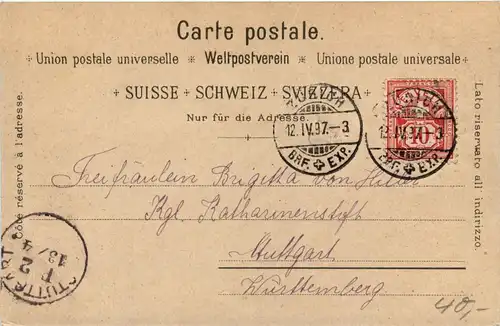 Carte postale.
+ Union postale universelle + Weltpostverein + Unione postale universale +
+ SUISSE + SCHWEIZ + SVIZZERA +
Nur für die Adresse.
Côté réservé à l'adresse.
Lato riservato all indirizzo.
ZÜRICH
12.IV.97.-3
BRF. EXP.
10
ZÜRICH
12.IV.97.-3
BRF. EXP.
Freifräulein Brigitta von
Kgl. Katharinenstift
Stuttgart
Württemberg
STUTTGART
P 2
13/4
40,-